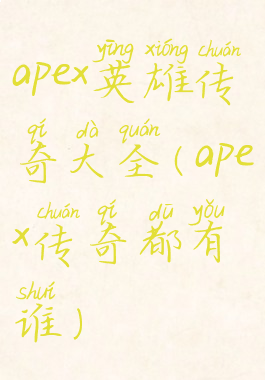 yīng xióng chuán
apex英雄传
qí dà quán
奇大全(ape
chuán qí dū yǒu
x传奇都有
shuí
谁)